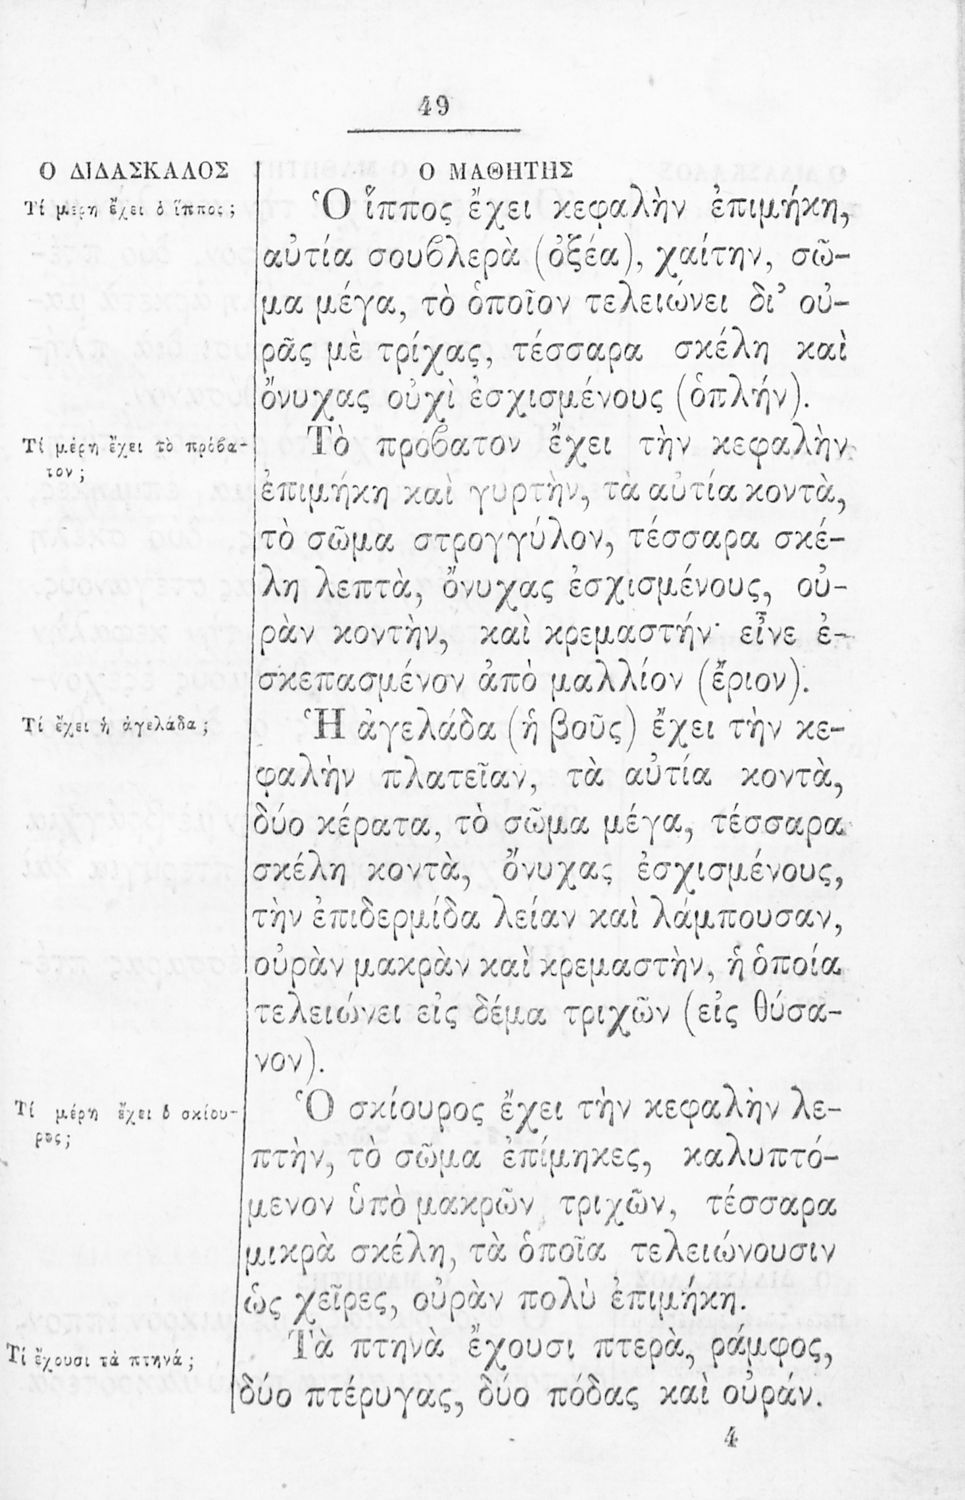 49
Ο ΔΙΔΑΣΚΑΛΟΣ
Ο ΜΑΘΗΤΗΣ
Τί μέρη ἔχει ὁ ἵππος;
Ὁ ἵππος ἔχει κεφαλὴν ἐπιμήκη,
αὐτία σουβλερὰ (ὀξέα), χαίτην, σῶ-
μα μέγα, τὸ ὁποῖον τελειώνει δι’ οὐ-
ρᾶς μὲ τρίχας, τέσσαρα σκέλη καὶ
ὄνυχας οὐχὶ ἐσχισμένους (ὁπλήν).
Τί μέρη ἔχει τὸ πρόβα-
τον;
Τὸ πρόβατον ἔχει τὴν κεφαλὴν
ἐπιμήκη καὶ γυρτὴν, τὰ αὐτία κοντὰ,
τὸ σῶμα στρογγύλον, τέσσαρα σκέ-
λη λεπτὰ, ὄνυχας ἐσχισμένους, οὐ-
ρὰν κοντὴν, καὶ κρεμαστήν· εἶνε ἐ-
σκεπασμένον ἀπὸ μαλλίον (ἔριον).
Τί ἔχει ἡ ἀγελάδα;
Ἡ ἀγελάδα (ἡ βοῦς) ἔχει τὴν κε-
φαλὴν πλατεῖαν, τὰ αὐτία κοντὰ,
δύο κέρατα, τὸ σῶμα μέγα, τέσσαρα
σκέλη κοντὰ, ὄνυχας ἐσχισμένους,
τὴν ἐπιδερμίδα λείαν καὶ λάμπουσαν,
οὐρὰν μακρὰν καὶ κρεμαστὴν, ἡ ὁποία
τελειώνει εἰς δέμα τριχῶν (εἰς θύσα-
νον).
Τί μέρη ἔχει ὁ σκίου-
ρος;
Ὁ σκίουρος ἔχει τὴν κεφαλὴν λε-
πτὴν, τὸ σῶμα ἐπίμηκες, καλυπτό-
μενον ὑπὸ μακρῶν τριχῶν, τέσσαρα
μικρὰ σκέλη, τὰ ὁποῖα τελειώνουσιν
ὡς χεῖρες, οὐρὰν πολὺ ἐπιμήκη.
Τί ἔχουσι τὰ πτηνά;
Τὰ πτηνὰ ἔχουσι πτερὰ, ράμφος,
δύο πτέρυγας, δύο πόδας καὶ οὐράν.
4